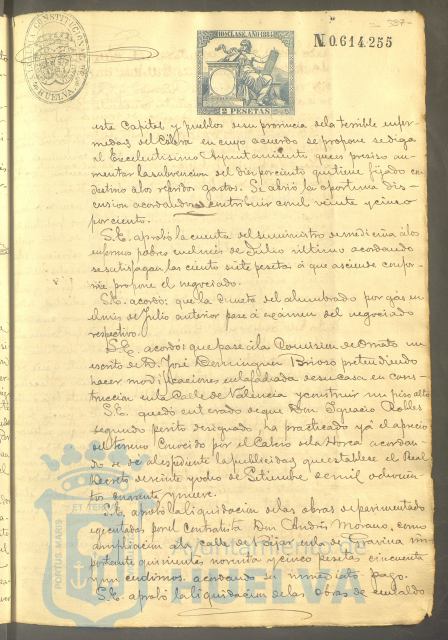 337-
N 0.614.255
HUELVA
10ª CLASE. AÑO 1884
PESETAS
esta Capital y pueblos de su provincia de la terrible enfer-
medad del Cólera en cuyo acuerdo se propone se diga
al Excelentisimo Ayuntamiento que es preciso au-
mentar la subvencion del diez por ciento que tiene fijado con
destino a los referidos gastos. Se abrió la oportuna dis-
cusion acordandose contribuir con el veinte y cinco
por ciento.
S.E. aprobó la cuenta del suministro de medicina á los
enfermos pobres en el mes de Julio último acordando
se satisfagan las ciento siete pesetas á que asciende confor-
me propone el negociado.
S.E. acordó: que la cuenta del alumbrado por gas en
el mes de Julio anterior pase á exámen del negociado
respectivo.
S.E. acordó: que pase á la Comision de Ornato un
escrito de D. José Dominguez Brioso pretendiendo
hacer modificaciones en la fachada de su casa en cons-
truccion en la Calle de Valencia y construir un piso alto
S.E. quedó enterado de que Don Ignacio Robles
segundo perito designado, ha practicado ya el aprecio
del terreno Conocido por el Cabezo de la Horca acordan-
dose dé al espediente la publicidad que establece el Real
Decreto de veinte y ocho de Setiembre de mil ochocien-
tos cuarenta y nueve.
S.E. aprobó la liquidacion de las obras de pavimentado
ejecutadas por el Contratista Don Andrés Morano, como
ampliacion á la calle de Béjar en la de Gravina im-
portante quinientas noventa y cinco pesetas cincuenta
y un centimos acordando su inmediato pago.
S.E. aprobó la liquidacion de las obras de
PORTUS MARIS
ET TERRAE
Ayuntamiento de
HUELVA